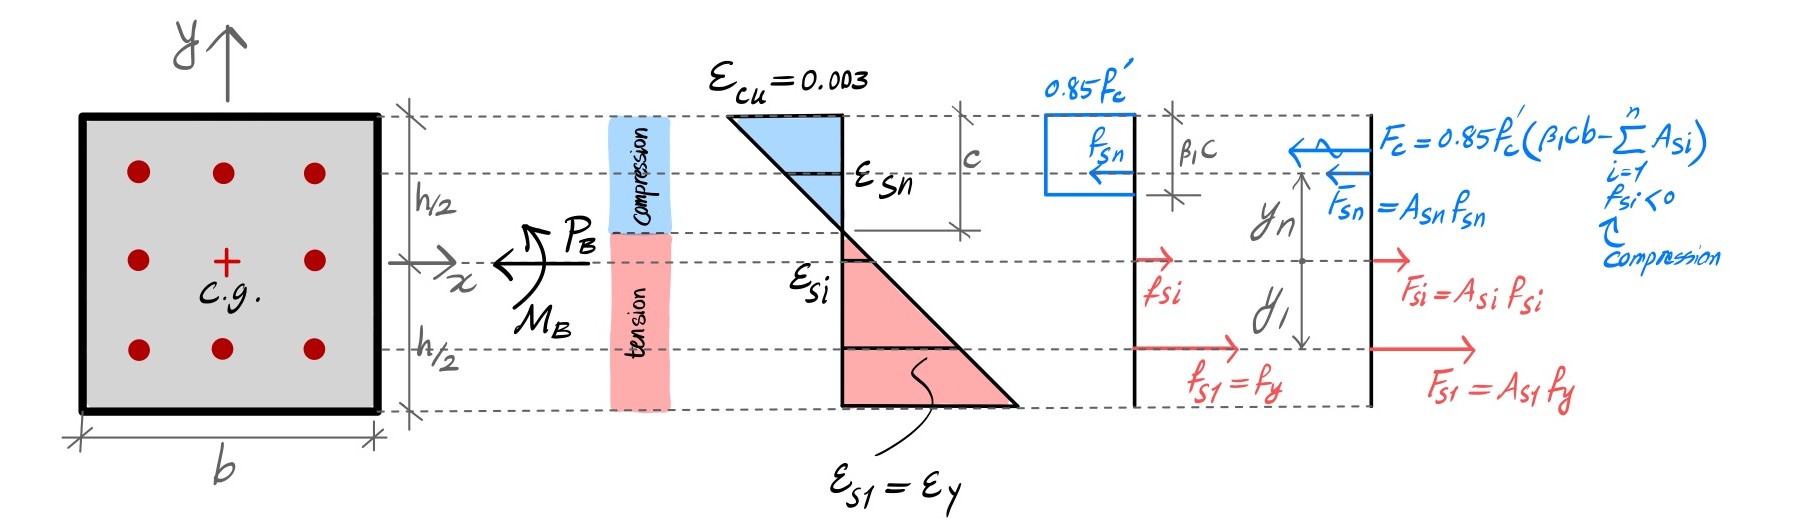 y
x
c.g.
h/2
h/2
b
P_B
M_B
compression
tension
ε_cu = 0.003
ε_sn
ε_si
ε_s1 = ε_y
c
0.85f_c'
f_sn
β₁c
f_si
f_s1 = f_y
y_n
y_1
F_c = 0.85f_c'(β₁cb - Σ A_si)
n
i=1
f_si < 0
compression
F_sn = A_sn f_sn
F_si = A_si f_si
F_s1 = A_s1 f_y